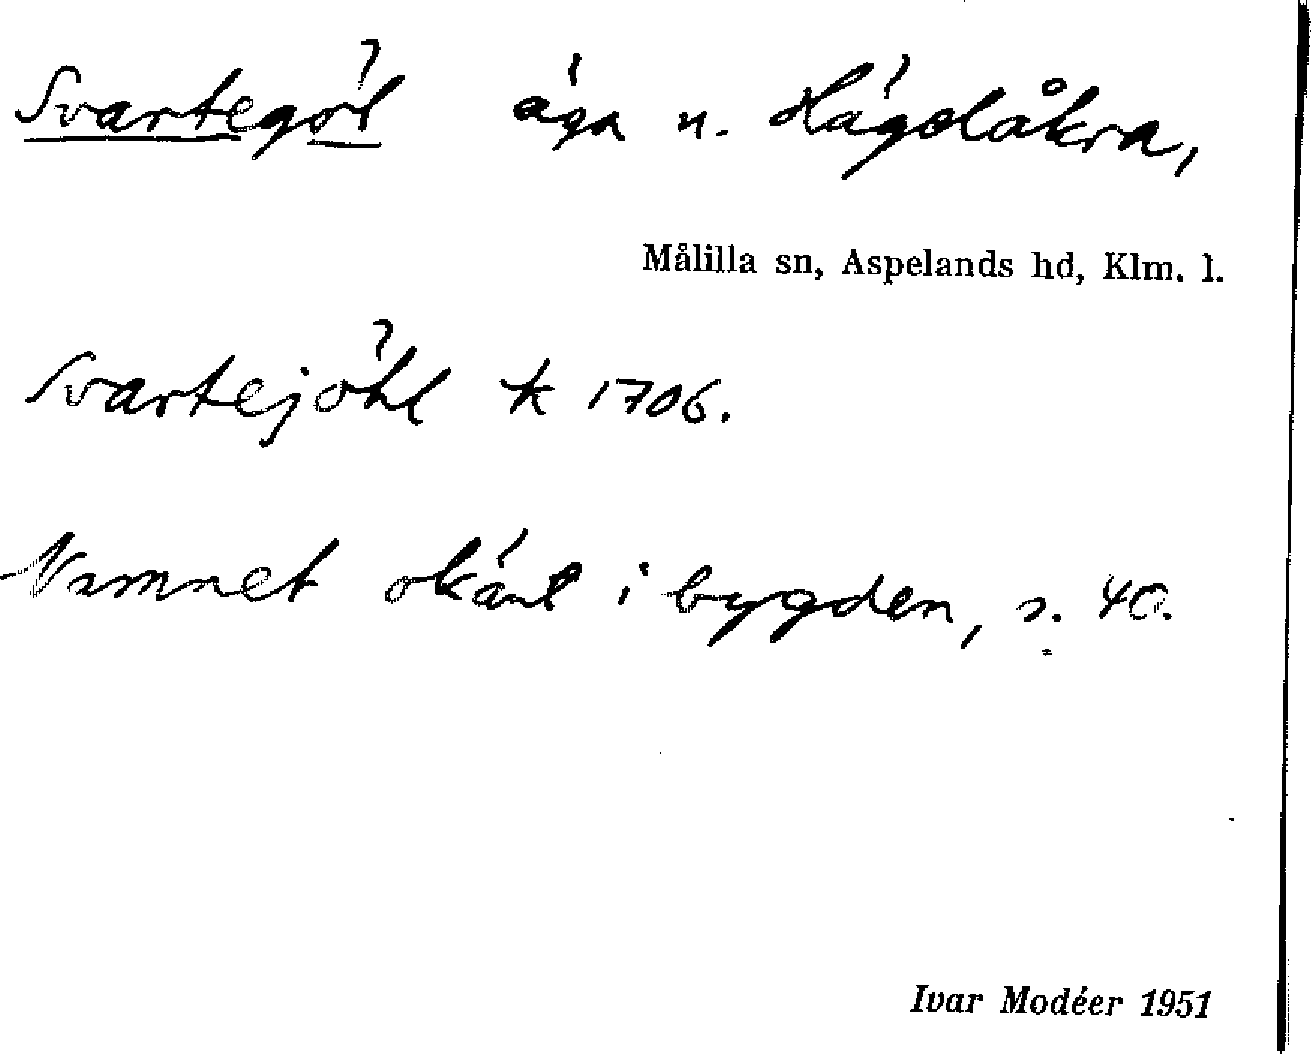 Svartegöl äga n. Hägdåkra,
Målilla sn, Aspelands hd, Klm. l.
Svartejöhl k 1706.
Namnet okänt i bygden, s. 40.
Ivar Modéer 1951